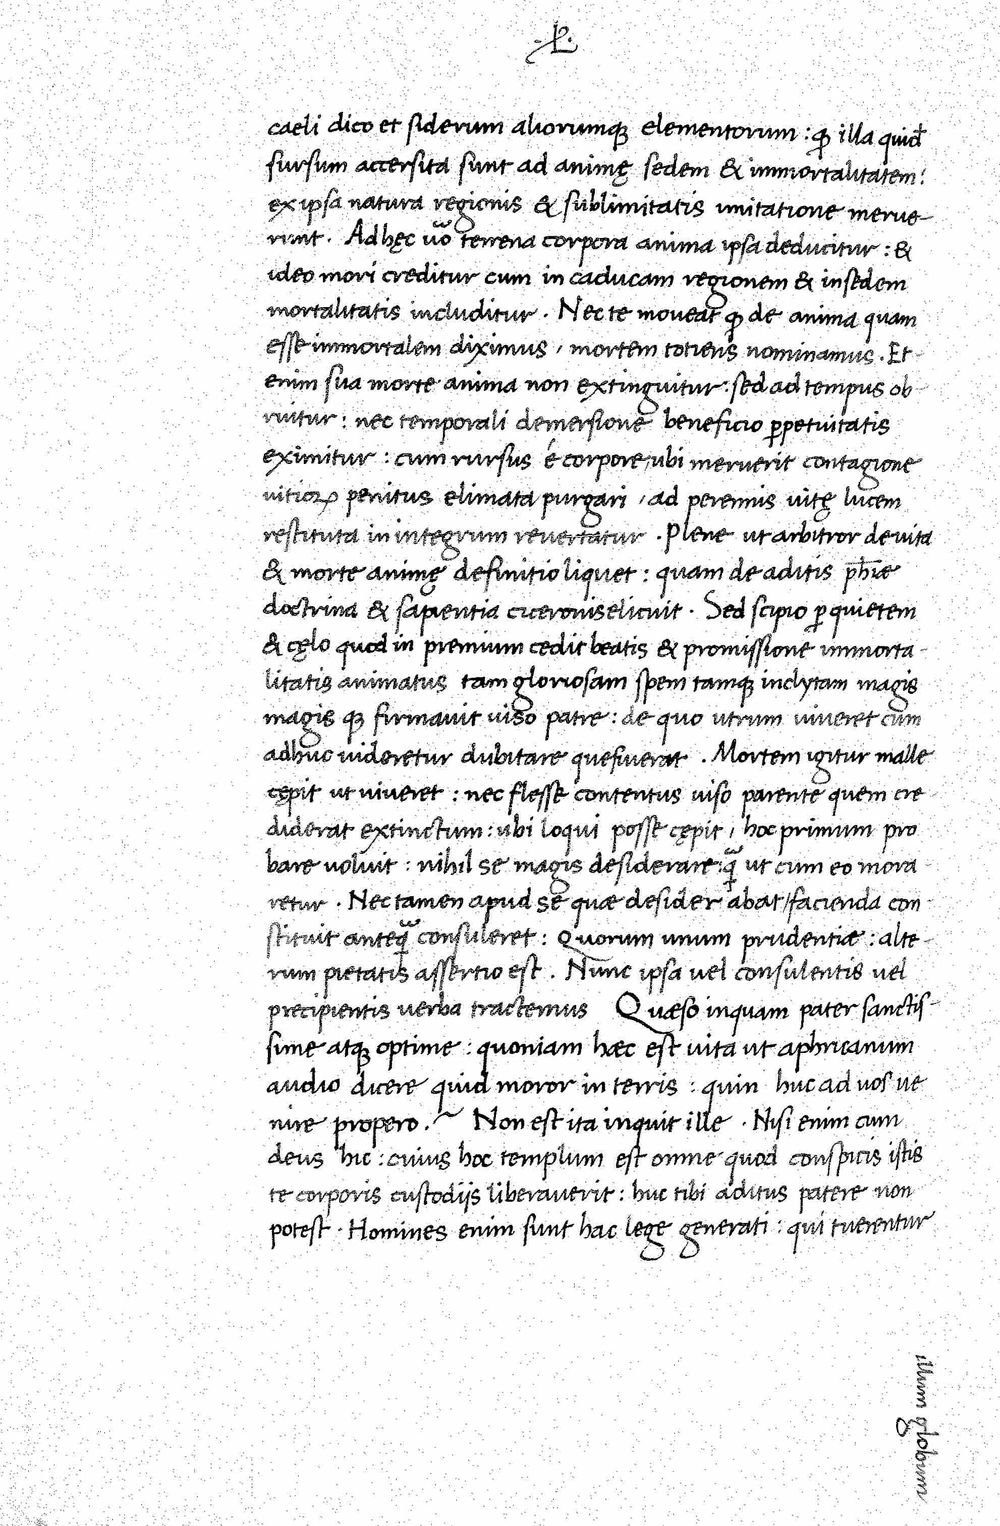 ·L·
caeli dico et siderum aliorumqꝫ elementorum : ꝙ illa quid̃
sursum accersita sunt ad animę sedem & immortalitatem :
ex ipsa natura regionis & sublimitatis imitatione merue-
runt . Ad hęc uoᷓ terrena corpora anima ipsa deducitur : &
ideo mori creditur cum in caducam regionem & in sedem
mortalitatis includitur . Nec te moveat ꝙ de anima quam
esse immortalem diximus , mortem totiens nominamus . Et-
enim sua morte anima non extinguitur : sed ad tempus ob-
ruitur : nec temporali demersione beneficio ꝑpetuitatis
eximitur : cum rursus é corpore , ubi meruerit contagione
uitioꝝ penitus elimata purgari , ad perennis uitę lucem
restituta in integrum reuertatur . Plene ut arbitror de uita
& morte animę definitio liquet : quam de aditis ph̄iæ
doctrina & sapientia ciceronis elicuit . Sed scipio ꝑ quietem
& cęlo quod in premium cedit beatis & promissione immorta-
litatis animatus tam gloriosam spem tamqꝫ inclytam magis
magis qꝫ firmauit uiso patre : de quo utrum uiueret cum
adhuc uideretur dubitare quesiuerat . Mortem igitur malle
cępit ut uiueret : nec flesse contentus uiso parente quem cre-
diderat extinctum : ubi loqui posse cępit , hoc primum pro
bare voluit : nihil se magis desiderare : ꝗᷓ ut cum eo mora-
retur . Nec tamen apud se quæ desiderabat / facienda con-
stituit anteꝗᷓ consuleret : Quorum unum prudentiæ : alte-
rum pietatis assertio est . Nunc ipsa uel consulentis uel
precipientis uerba tractemus Quæso inquam pater sanctis-
sime atqꝫ optime : quoniam hæc est uita ut aphricanum
audio dicere quid moror in terris : quin huc ad uos ue
nire propero . ~ Non est ita inquit ille . Nisi enim cum
deus hic : cuius hoc templum est omne quod conspicis istis
te corporis custodijs liberauerit : huc tibi aditus patere non
potest . Homines enim sunt hac lege generati : qui tuerentur
illum globum